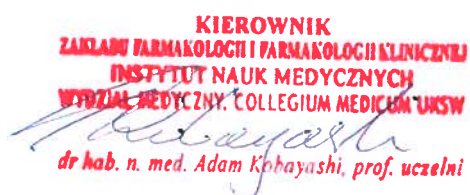 KIEROWNIK
ZAKŁADU FARMAKOLOGII I FARMAKOLOGII KLINICZNEJ
INSTYTUT NAUK MEDYCZNYCH
WYDZIAŁ MEDYCZNY. COLLEGIUM MEDICUM UKSW
Kobayashi
dr hab. n. med. Adam Kobayashi, prof. uczelni